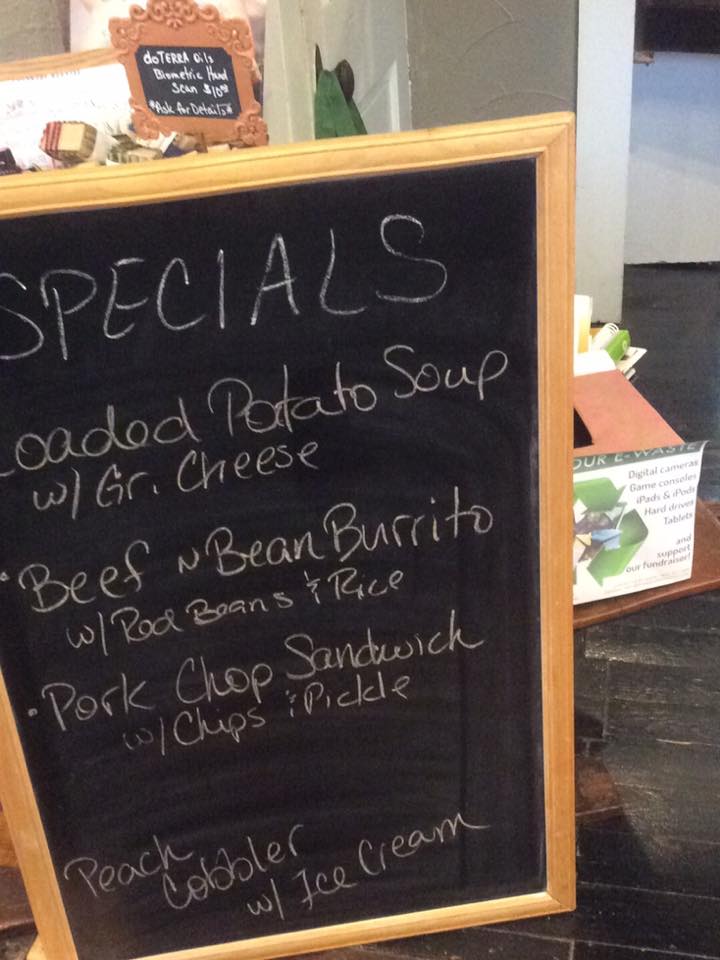 doTERRA Oils
Biometric Hand
Scan $10.00
*Ask for Details*
SPECIALS
Loaded Potato Soup
w/ Gr. Cheese
• Beef N Bean Burrito
w/ Red Beans & Rice
• Pork Chop Sandwich
w/ Chips & Pickle
Peach
Cobbler
w/ Ice Cream
OUR E-WASTE
Digital cameras
Game consoles
iPads & iPods
Hard drives
Tablets
and
support
our fundraiser!